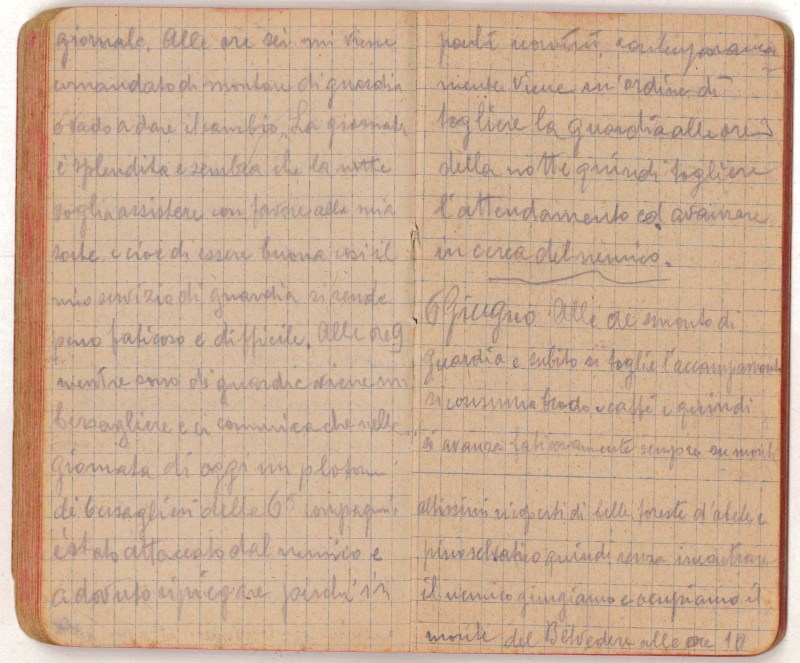 giornale. Alle ore sei mi viene
comandato di montare di guardia
e vado a dare il cambio. La giornata
è splendita e sembra che la notte
voglia assistere con favore alla mia
sorte e cioè di essere buona così il
mio servizio di guardia si rende
meno faticoso e difficile. Alle ore 9
mentre sono di guardia viene un
bersagliere e ci comunica che nella
giornata di oggi un plotone
di bersaglieri della 6ª compagnia
è stato attaccato dal nemico e
a dovuto ripiegare perchè in
pochi contemporanea
mente viene un'ordine di
togliere la guardia alle ore 3
della notte quindi togliere
l'attendamento ed avanzare
in cerca del nemico.
6 Giugno Alle ore smonto di
guardia e subito si toglie l'accampamento
si consuma brodo e caffè e quindi
si avanza faticosamente sempre su monti
altissimi ricoperti di belle foreste d'abete e
pino selvatico quindi senza incontrare
il nemico giungiamo e occupiamo il
monte del Belvedere alle ore 10